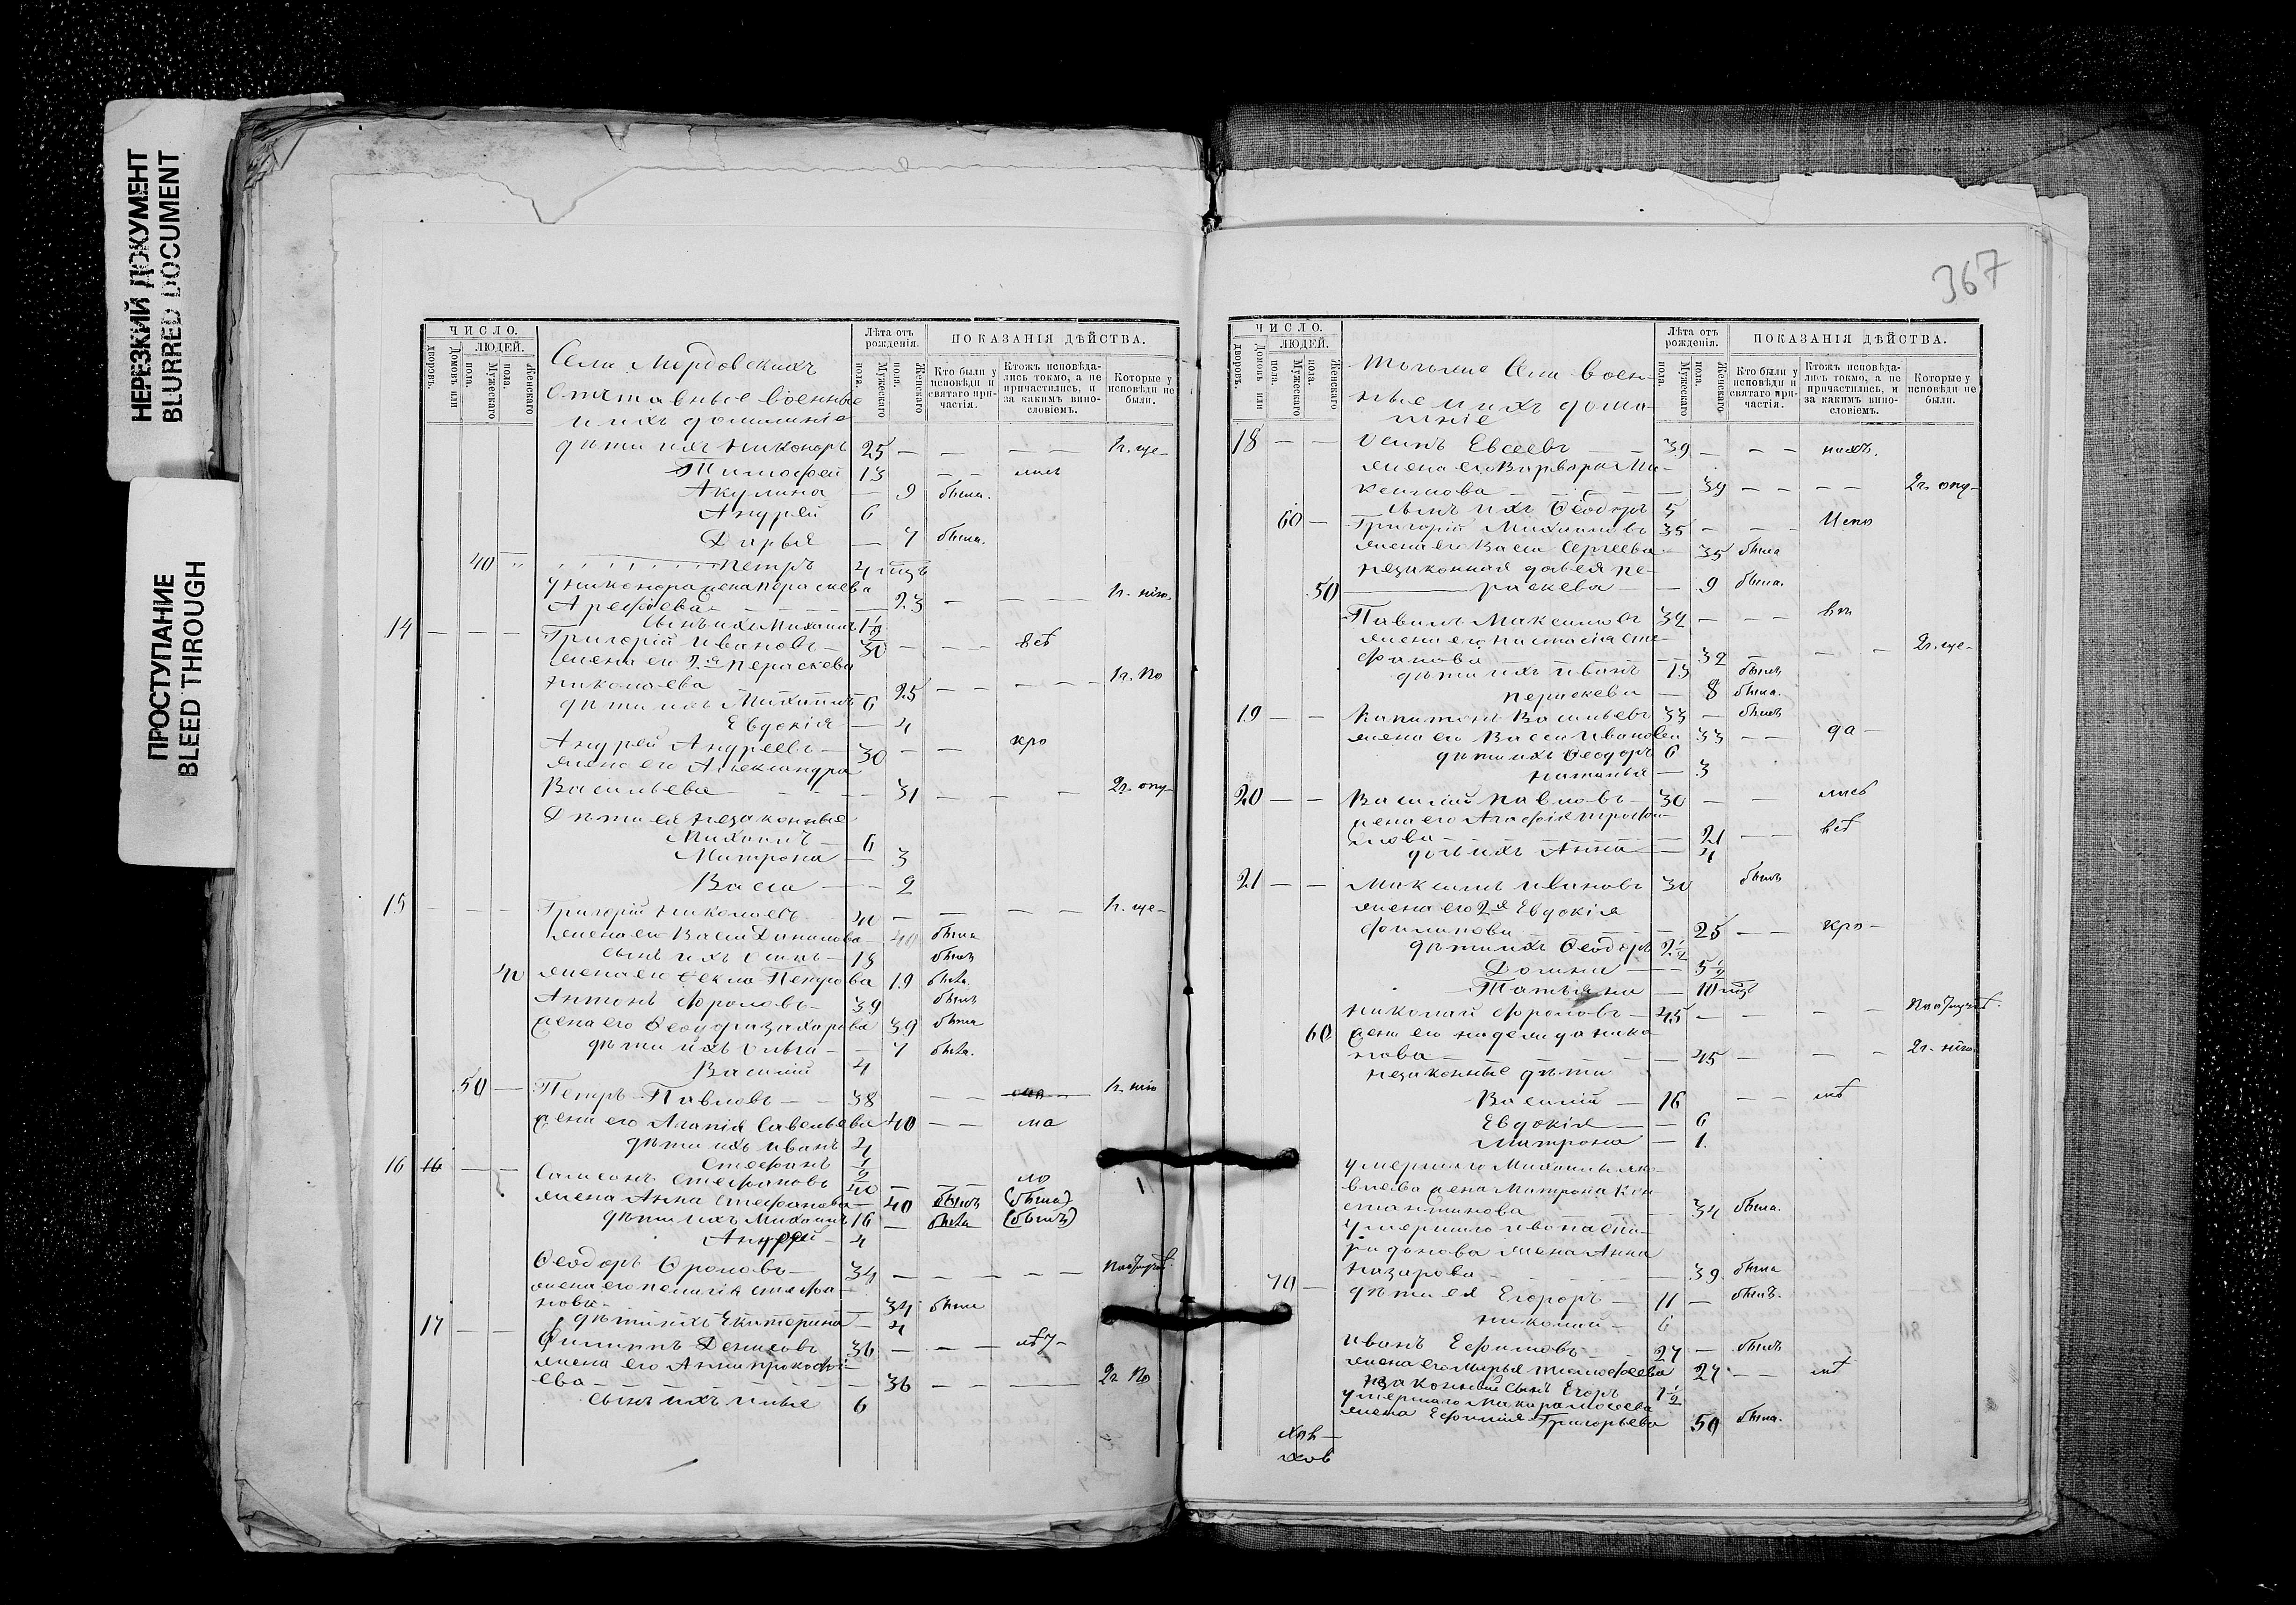 НЕРЕЗКИЙ ДОКУМЕНТ
BLURRED DOCUMENT
ПРОСТУПАНИЕ
BLEED THROUGH
ЧИСЛО.
ЛЮДЕЙ.
Домовъ или дворовъ.
Мужескаго пола.
Женскаго пола.
Села Мордовскихъ
Отставные военные
и ихъ домашніе
Лѣта отъ рожденія.
Мужескаго пола.
Женскаго пола.
ПОКАЗАНІЯ ДѢЙСТВА.
Кто были у исповѣди и святаго причастія.
Ктожъ исповѣдались токмо, а не причастились, и за какимъ винословіемъ.
Которые у исповѣди не были.
дѣти ихъ Никоноръ 25 — — — —
Тимофей 13 — —
Акулина — 9 была.
Андрей 6
Дарья — 7 была.
40 Петръ 4
у Никонора жена Параскева
Арефіева — 23 — — —
сынъ ихъ Михаилъ 1 1/2
14 — — — Григорій Ивановъ — 30 — — —
жена его 2я Параскева
Николаева 25 — — — —
дѣти ихъ Михаилъ 6
Евдокія — 4
Андрей Андреевъ — 30 — —
жена его Александра
Васильева — — 31 — — —
Дѣти ея незаконные
Михаилъ — 6
Матрона — 3
Васса — — 2
15 — — — Григорій Николаевъ 40 — — — —
жена его Васса Данилова — 40 была
сынъ ихъ Осипъ — 18 былъ
40 жена его Фекла Петрова 19 была.
Антонъ Фроловъ — 39 былъ
жена его Ѳеодора Захарова 39 была
дѣти ихъ Ольга — — 7 была.
Василій 4
50 — Петръ Павловъ — — 38 — —
жена его Агапія Савельева 40 — —
дѣти ихъ Иванъ 4
Стефанъ 1/2
16 — — Самсонъ Стефановъ 40 — — —
жена Анна Стефанова — 40 былъ (была)
дѣти ихъ Михаилъ 16 — была (былъ)
Андрей — 4
Ѳеодоръ Фроловъ — 34 — — — — —
жена его Пелагія Стефа-
нова — 34 была
дѣти ихъ Екатерина — 4
17 — — Филиппъ Денисовъ 36 — — —
жена его Анна Прокофі-
ева — — — 36 — — —
сынъ ихъ Илья 6
367
ЧИСЛО.
ЛЮДЕЙ.
Домовъ или дворовъ.
Мужескаго пола.
Женскаго пола.
Тогоже Села воен-
ные и ихъ дома-
шніе
Лѣта отъ рожденія.
Мужескаго пола.
Женскаго пола.
ПОКАЗАНІЯ ДѢЙСТВА.
Кто были у исповѣди и святаго причастія.
Ктожъ исповѣдались токмо, а не причастились, и за какимъ винословіемъ.
Которые у исповѣди не были.
18 — — Осипъ Евсеевъ 39 — — —
жена его Варвара Ма-
ксимова — — 39 — — — —
сынъ ихъ Ѳеодоръ 5
60 — Григорій Михаиловъ 35 — — —
жена его Васса Сергеева — 35 была
незаконная дочь ея Па-
50 раскева — — 9 была.
Павелъ Максимовъ 32 — — —
жена его Настасія Сте-
фанова — 32 — — —
дѣти ихъ Иванъ 13 былъ
Параскева — 8 была.
19 — — Капитонъ Васильевъ 33 — былъ
жена его Васса Иванова 33 — —
дѣти ихъ Ѳеодоръ 6
Наталья — 3
20 — — Василій Павловъ — 30 — —
жена его Агафія Трофи-
мова — — 21 — —
дочь ихъ Анна — — 4
21 — — Максимъ Ивановъ 30 былъ
жена его 2я Евдокія
Филипова — — 25 — —
дѣти ихъ Ѳеодоръ 2 1/2
Домна — — 5 1/2
Татьяна — 10
Николай Фроловъ — 45 — — — —
60 жена его Надежда Нико-
нова — — 45 — — —
незаконные дѣти
Василій — 16 — —
Евдокія — — 6
Матрона — 1.
умершаго Михаила Яко-
влева жена Матрона Кон-
стантинова — 34 была.
умершаго Ивана Спи-
ридонова жена Анна
Назарова — — 39 была
70 — дѣти ея Егоръ — 11 — былъ.
Николай — 6
Иванъ Ефимовъ — 27 — былъ
жена его Марья Тимофеева 27 — —
незаконный сынъ Егоръ 1 1/2
умершаго Макара Мосеева
жена Ефимія Григорьева 50 была.